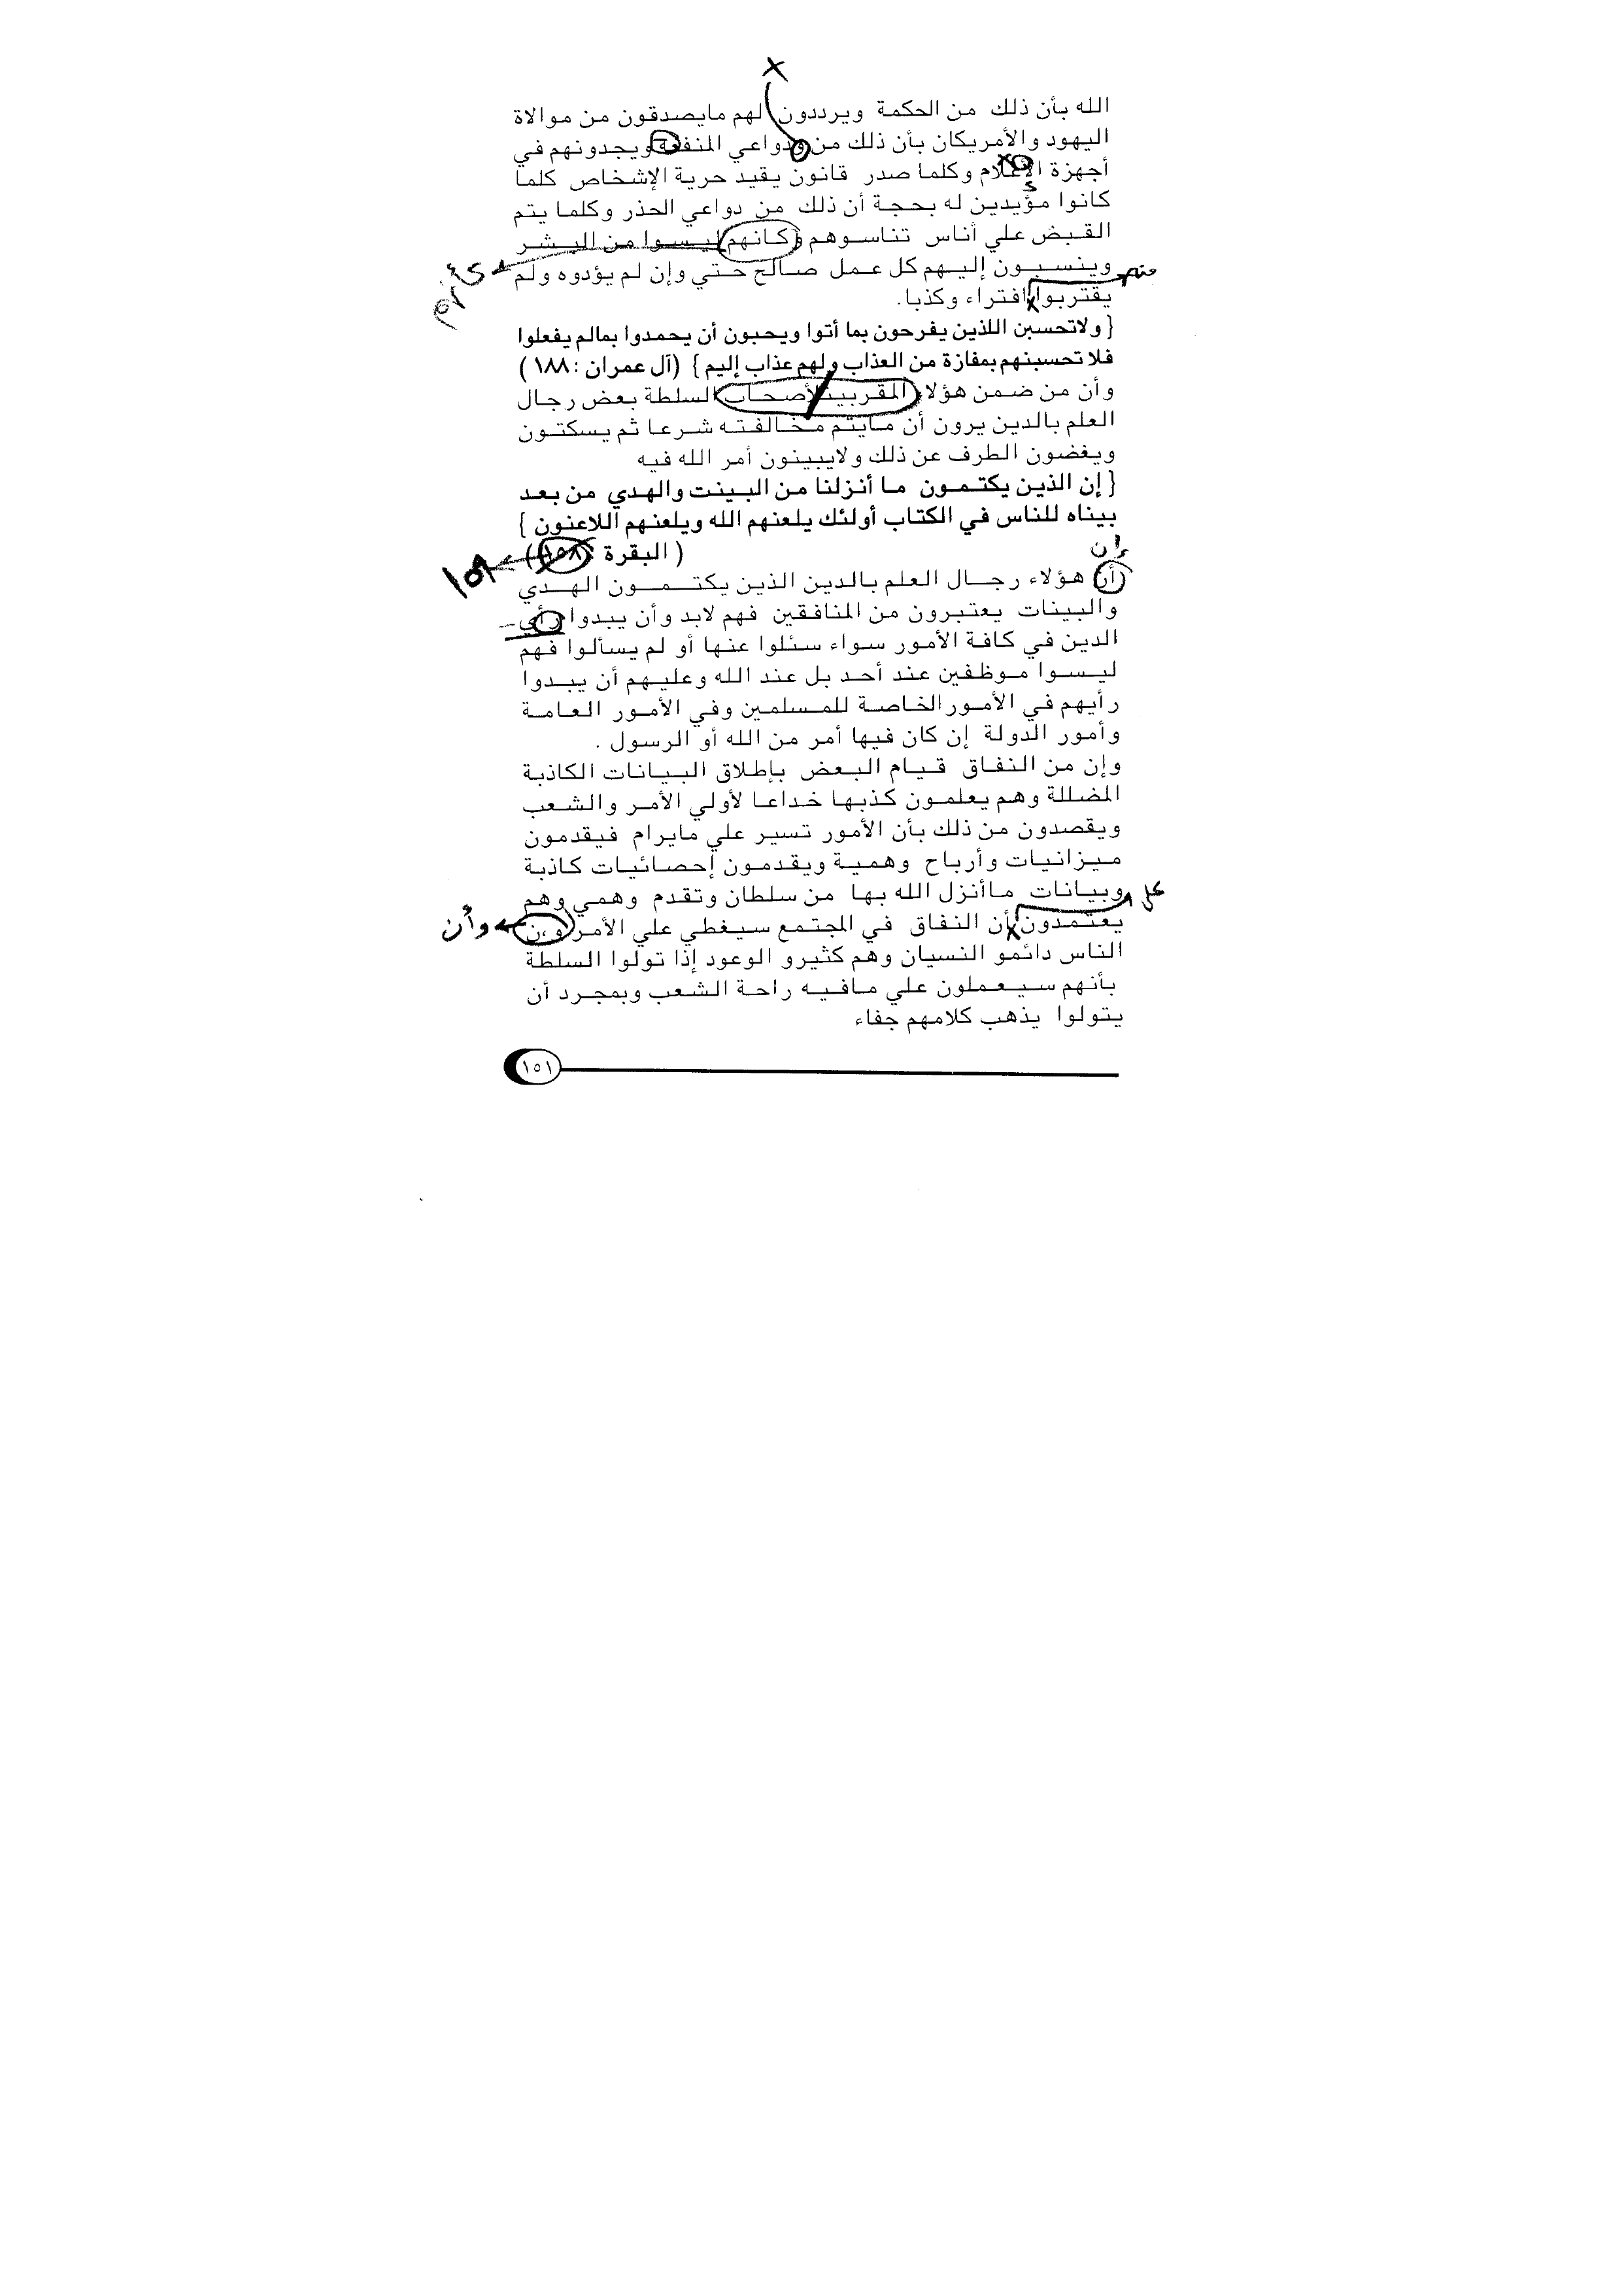 الله بأن ذلك من الحكمة ويرددون لهم مايصدقون من موالاة
اليهود والأمريكان بأن ذلك من ودواعي المنفعة ويجدونهم في
أجهزة الإعلام وكلما صدر قانون يقيد حرية الإشخاص كلما
كانوا مؤيدين له بحجة أن ذلك من دواعي الحذر وكلما يتم
القبض علي أناس تناسوهم وكانهم ليسوا من البشر
كأنهم
وينسبون إليهم كل عمل صالح حتي وإن لم يؤدوه ولم
منه
يقتربوا افتراء وكذبا.
{ ولاتحسبن اللذين يفرحون بما أتوا ويحبون أن يحمدوا بمالم يفعلوا
فلا تحسبنهم بمفازة من العذاب ولهم عذاب إليم } (آل عمران : ١٨٨ )
وأن من ضمن هؤلاء المقربين لأصحاب السلطة بعض رجال
العلم بالدين يرون أن مايتم مخالفته شرعا ثم يسكتون
ويغضون الطرف عن ذلك ولايبينون أمر الله فيه
{ إن الذين يكتمون ما أنزلنا من البينت والهدي من بعد
بيناه للناس في الكتاب أولئك يلعنهم الله ويلعنهم اللاعنون }
( البقرة : ١٥٨ )
١٥٩
إن
أن هؤلاء رجال العلم بالدين الذين يكتمون الهدي
والبينات يعتبرون من المنافقين فهم لابد وأن يبدوا رأي
الدين في كافة الأمور سواء سئلوا عنها أو لم يسألوا فهم
ليسوا موظفين عند أحد بل عند الله وعليهم أن يبدوا
رأيهم في الأمور الخاصة للمسلمين وفي الأمور العامة
وأمور الدولة إن كان فيها أمر من الله أو الرسول .
وإن من النفاق قيام البعض بإطلاق البيانات الكاذبة
المضللة وهم يعلمون كذبها خداعا لأولي الأمر والشعب
ويقصدون من ذلك بأن الأمور تسير علي مايرام فيقدمون
ميزانيات وأرباح وهمية ويقدمون إحصائيات كاذبة
وبيانات ماأنزل الله بها من سلطان وتقدم وهمي وهم
على
يعتمدون أن النفاق في المجتمع سيغطي علي الأمر و،ن
وأن
الناس دائمو النسيان وهم كثيرو الوعود إذا تولوا السلطة
بأنهم سيعملون علي مافيه راحة الشعب وبمجرد أن
يتولوا يذهب كلامهم جفاء
١٥١